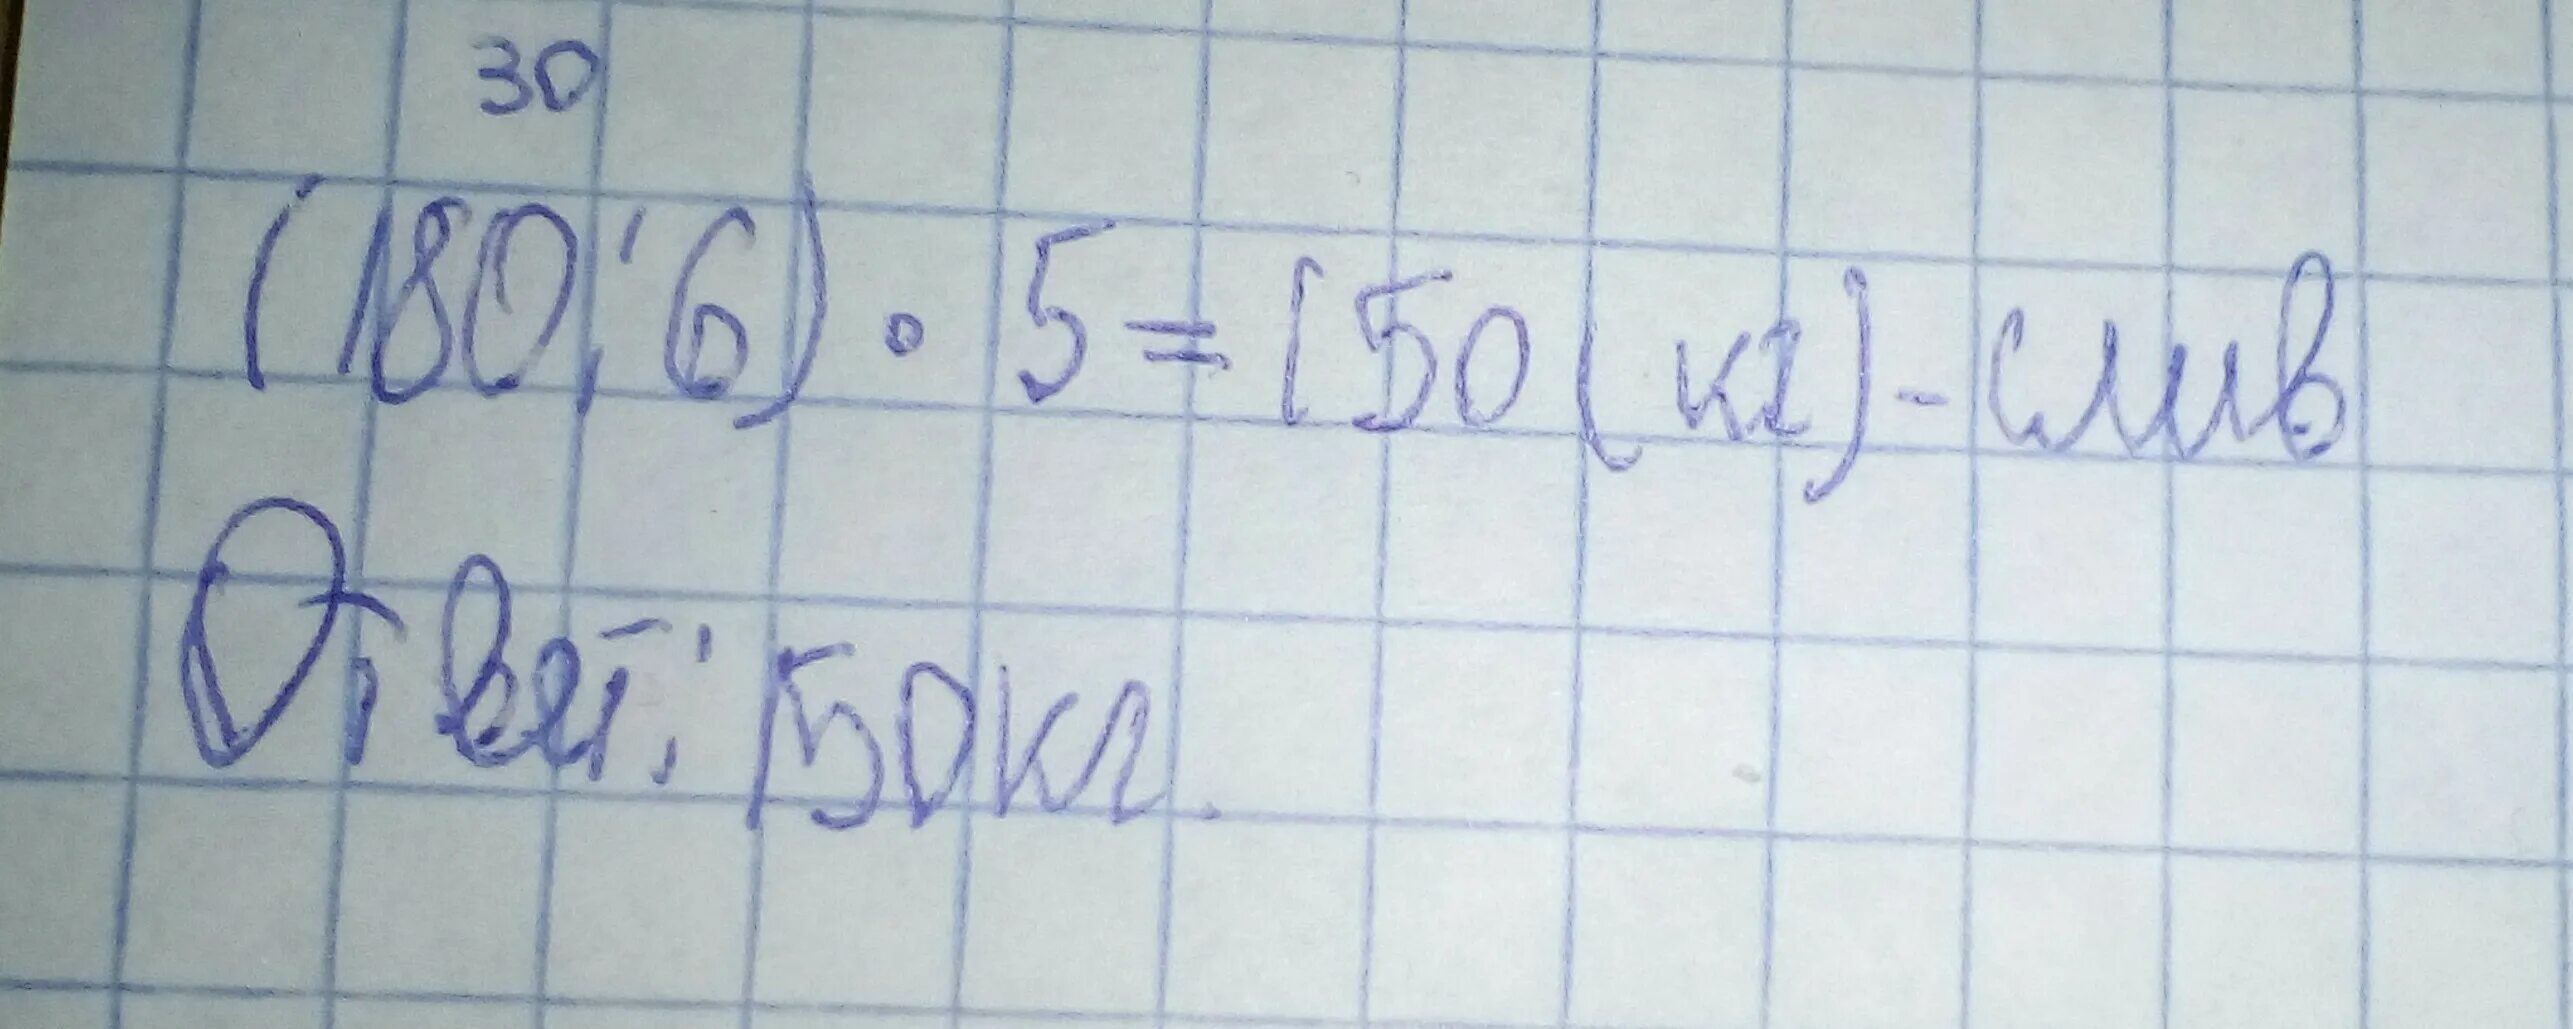 30
(180:6)·5=150(кг)-слив
Ответ: 150кг.